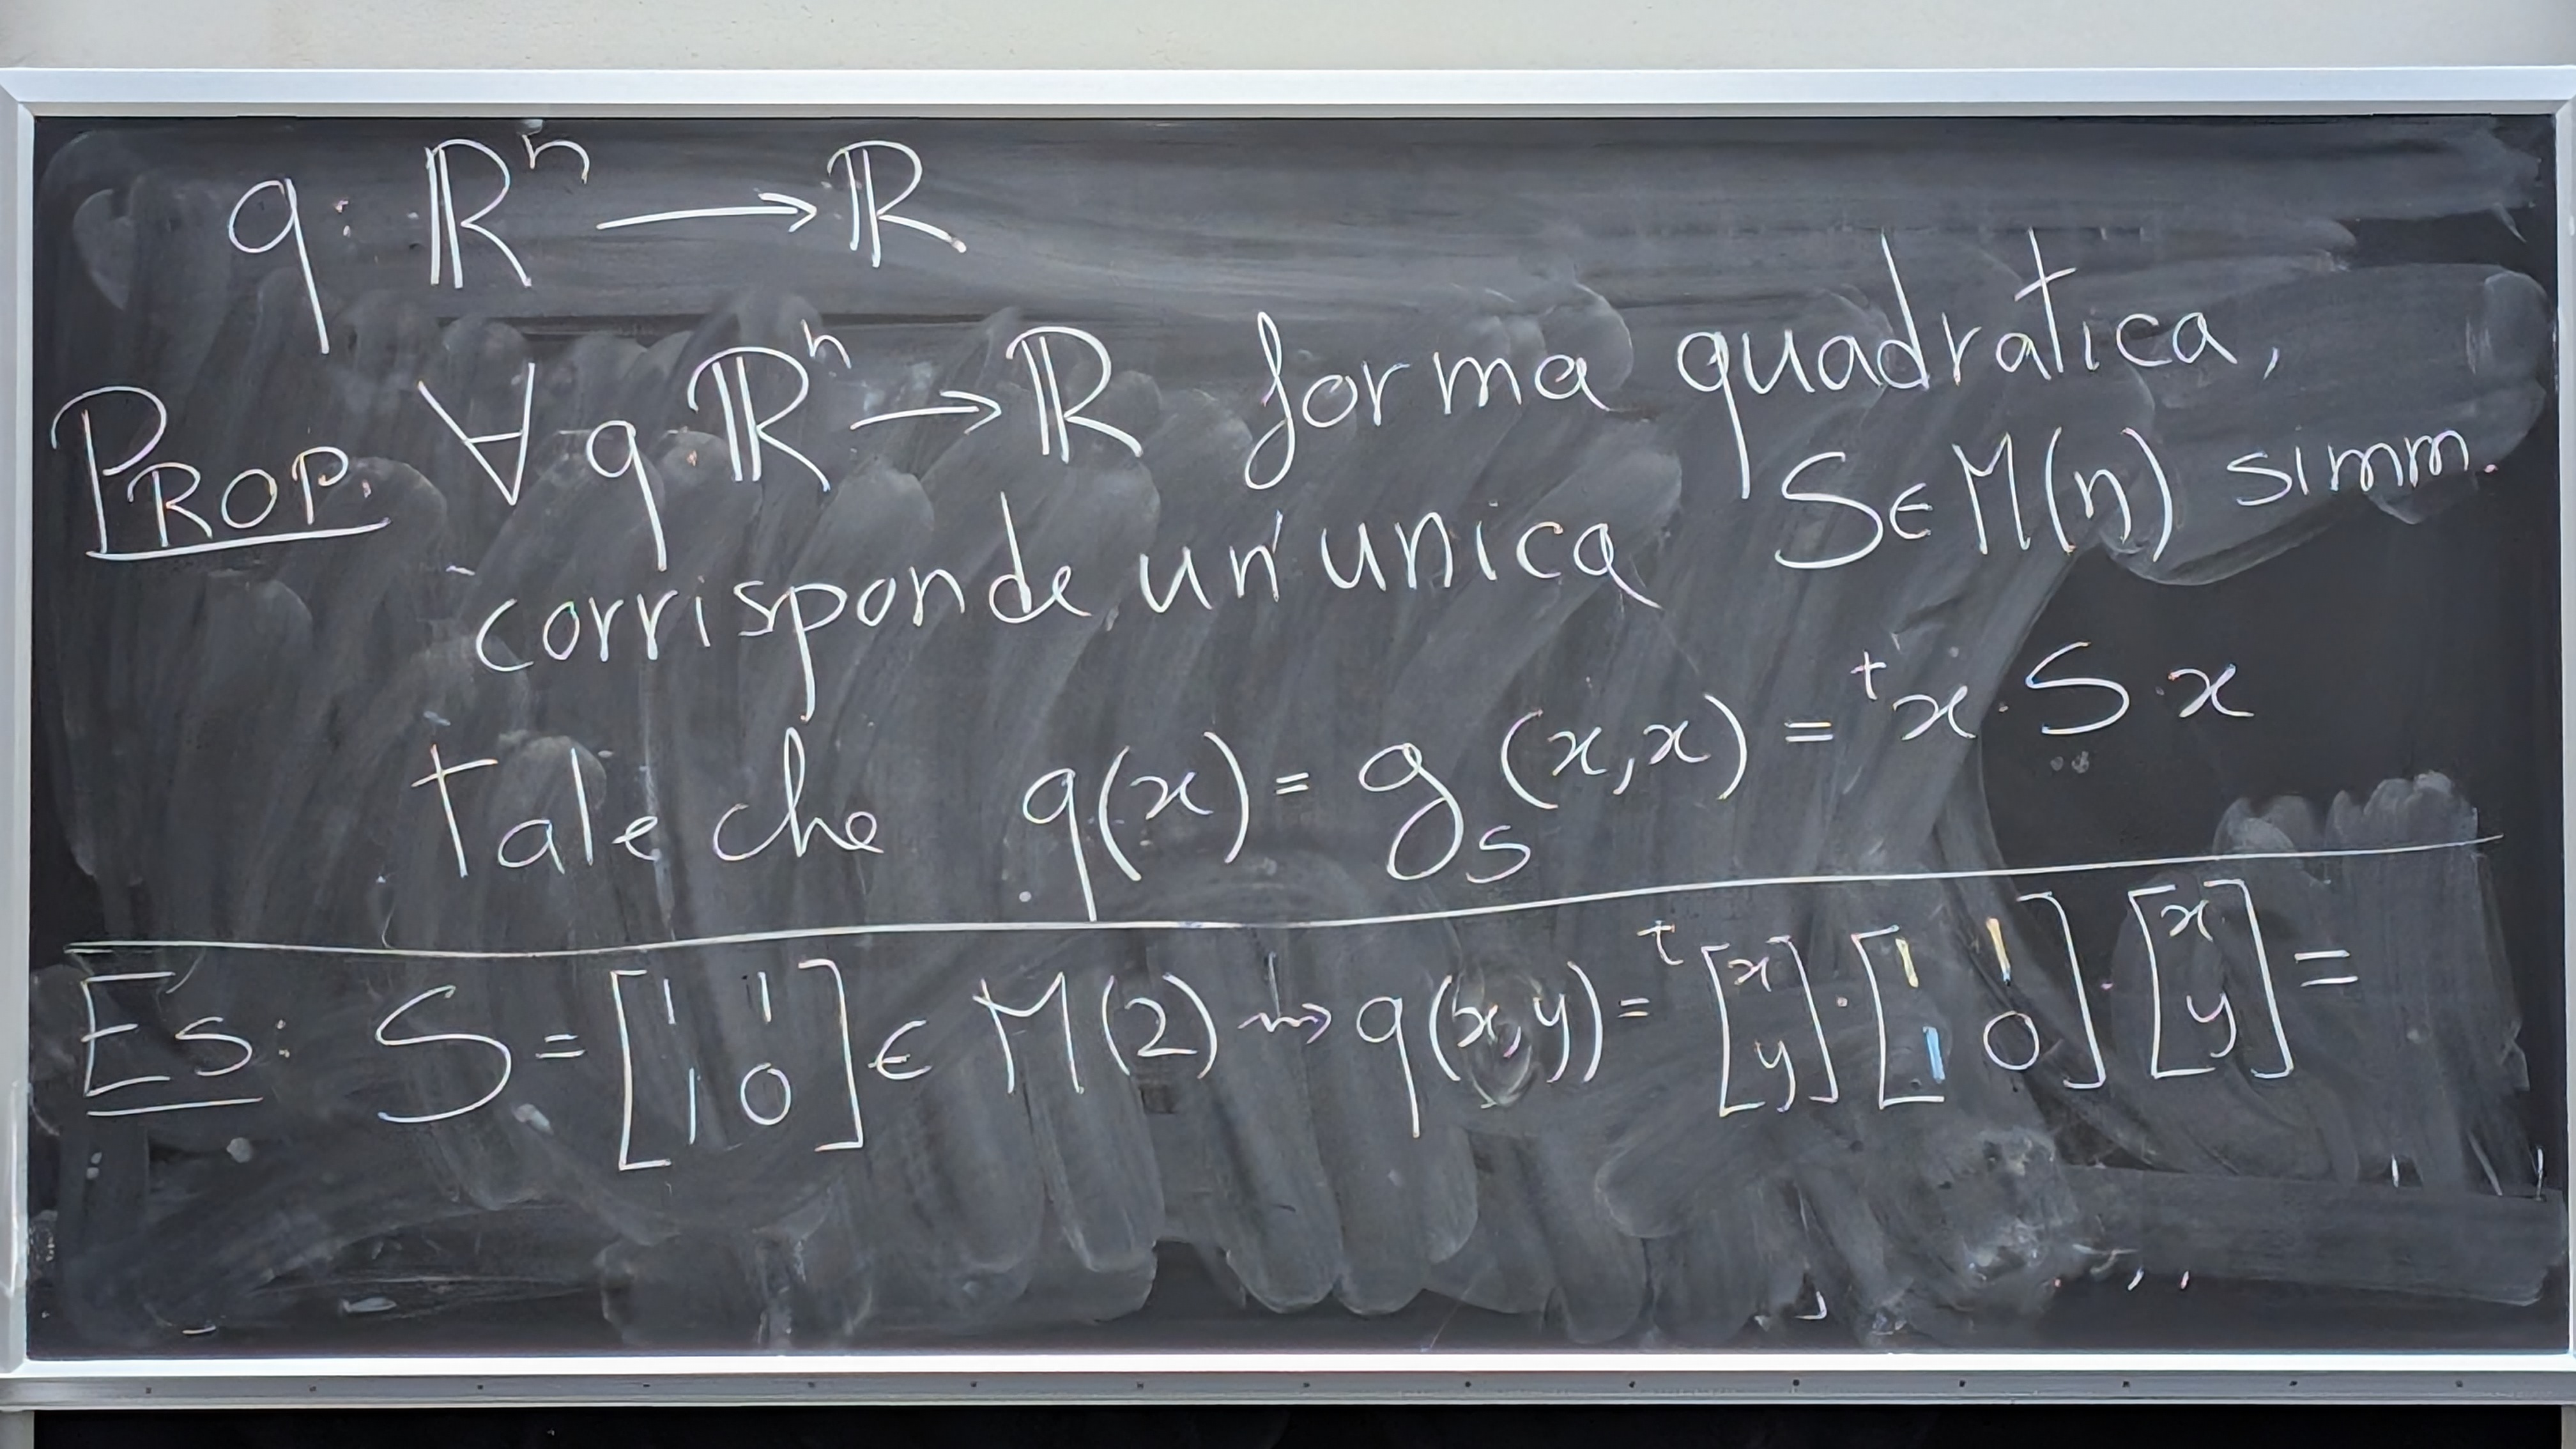 q: ℝⁿ ⟶ ℝ
PROP. ∀ q: ℝⁿ → ℝ forma quadratica,
corrisponde un'unica S ∈ M(n) simm.
tale che q(x) = g_S (x,x) = ᵗx · S · x
Es: S = [1 1; 1 0] ∈ M(2) ⇝ q(x,y) = ᵗ[x; y] · [1 1; 1 0] · [x; y] =